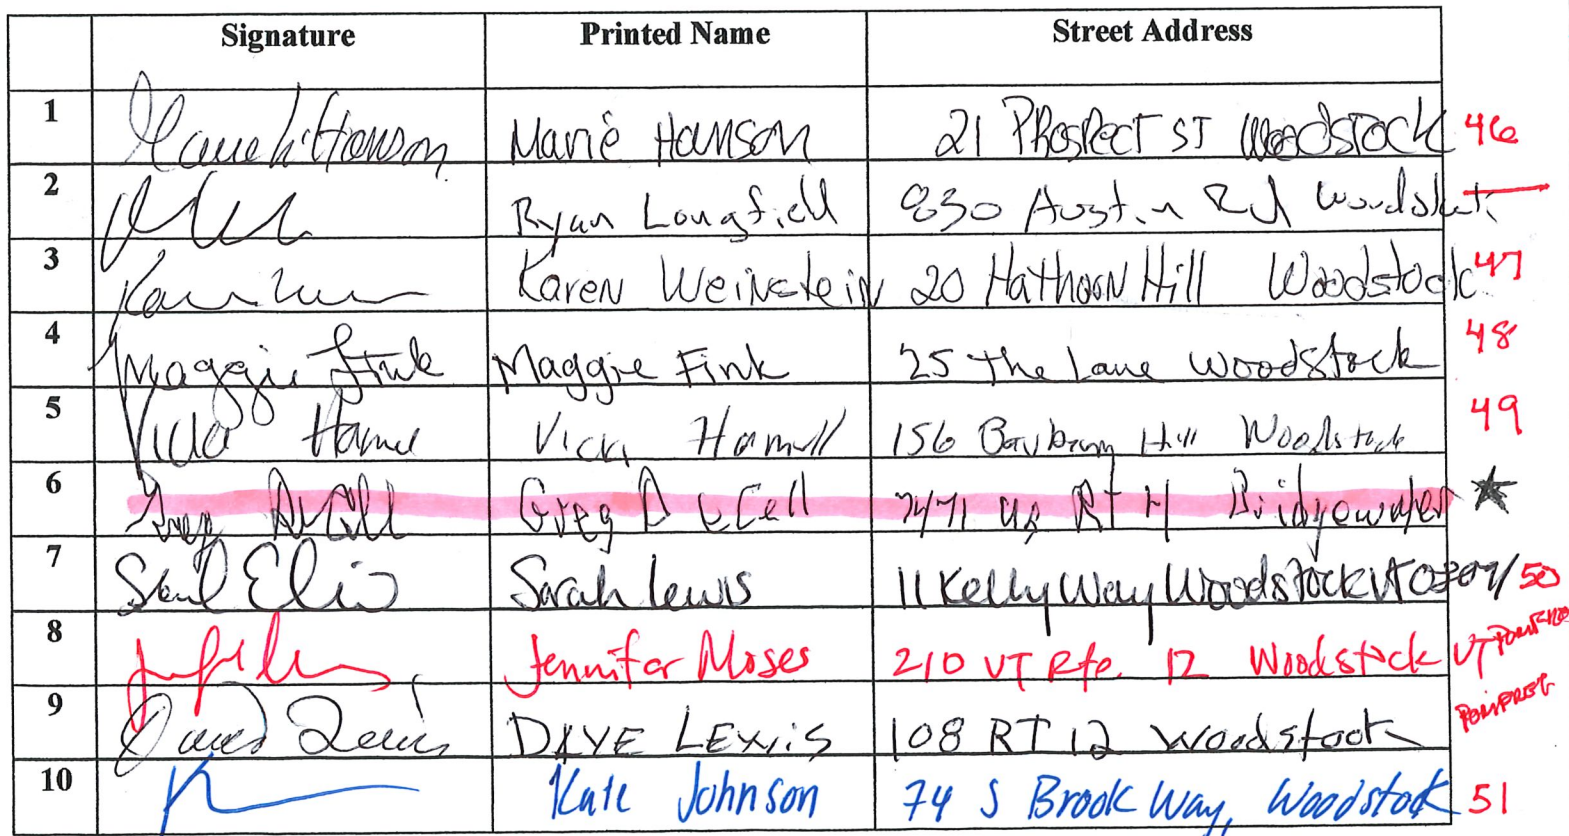 Signature Printed Name Street Address
1 Marie Hanson 21 Prospect St Woodstock 46
2 Ryan Longfield 830 Austin Rd Woodstock
3 Karen Weinstein 20 Hathorn Hill Woodstock 47
4 Maggie Fink Maggie Fink 25 The Lane Woodstock 48
5 Vicki Hamill 156 Hill Woodstock 49
6 Greg 7471 Rt 4 Bridgewater
7 Sarah Lewis 11 Kelly Way Woodstock VT 50
8 Jennifer Moses 210 VT Rte. 12 Woodstock VT
9 David Lewis DAVE LEWIS 108 RT 12 Woodstock POMFRET
10 Kate Johnson 74 S Brook Way, Woodstock 51